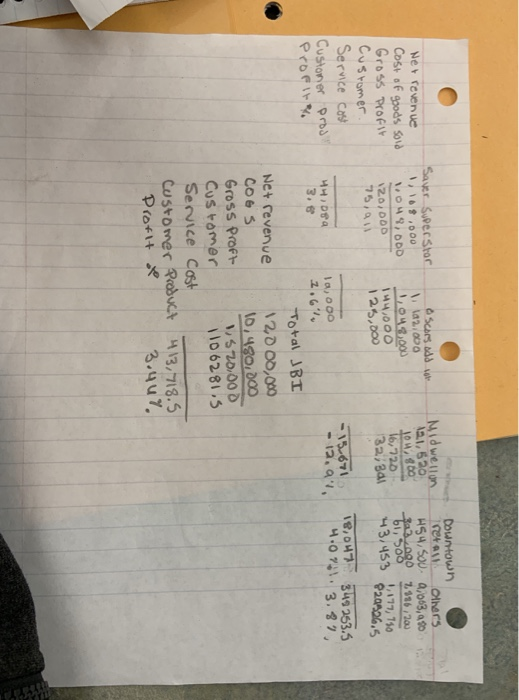 Saver Super Star
Net revenue 1,168,000
Cost of goods sold 1,048,000
Gross Profit 120,000
Customer 75,911
Service Cost
Customer prod 44,089
Profit % 3.8
1,192,000
1,048,000
144,000
125,000
19,000
1.6%
Midwellion
121,520
104,800
16,720
32,391
-15,671
-12.9%
Downtown
retail
454,500
61,500
43,453
18,047
4.0%
Others
1,177,780
349253.5
3.8%
Total JBI
Net revenue 12000,000
COGS 10,480,000
Gross profit 1,520,000
Customer 1106281.5
Service Cost
Customer Product 413,718.5
Profit % 3.44%